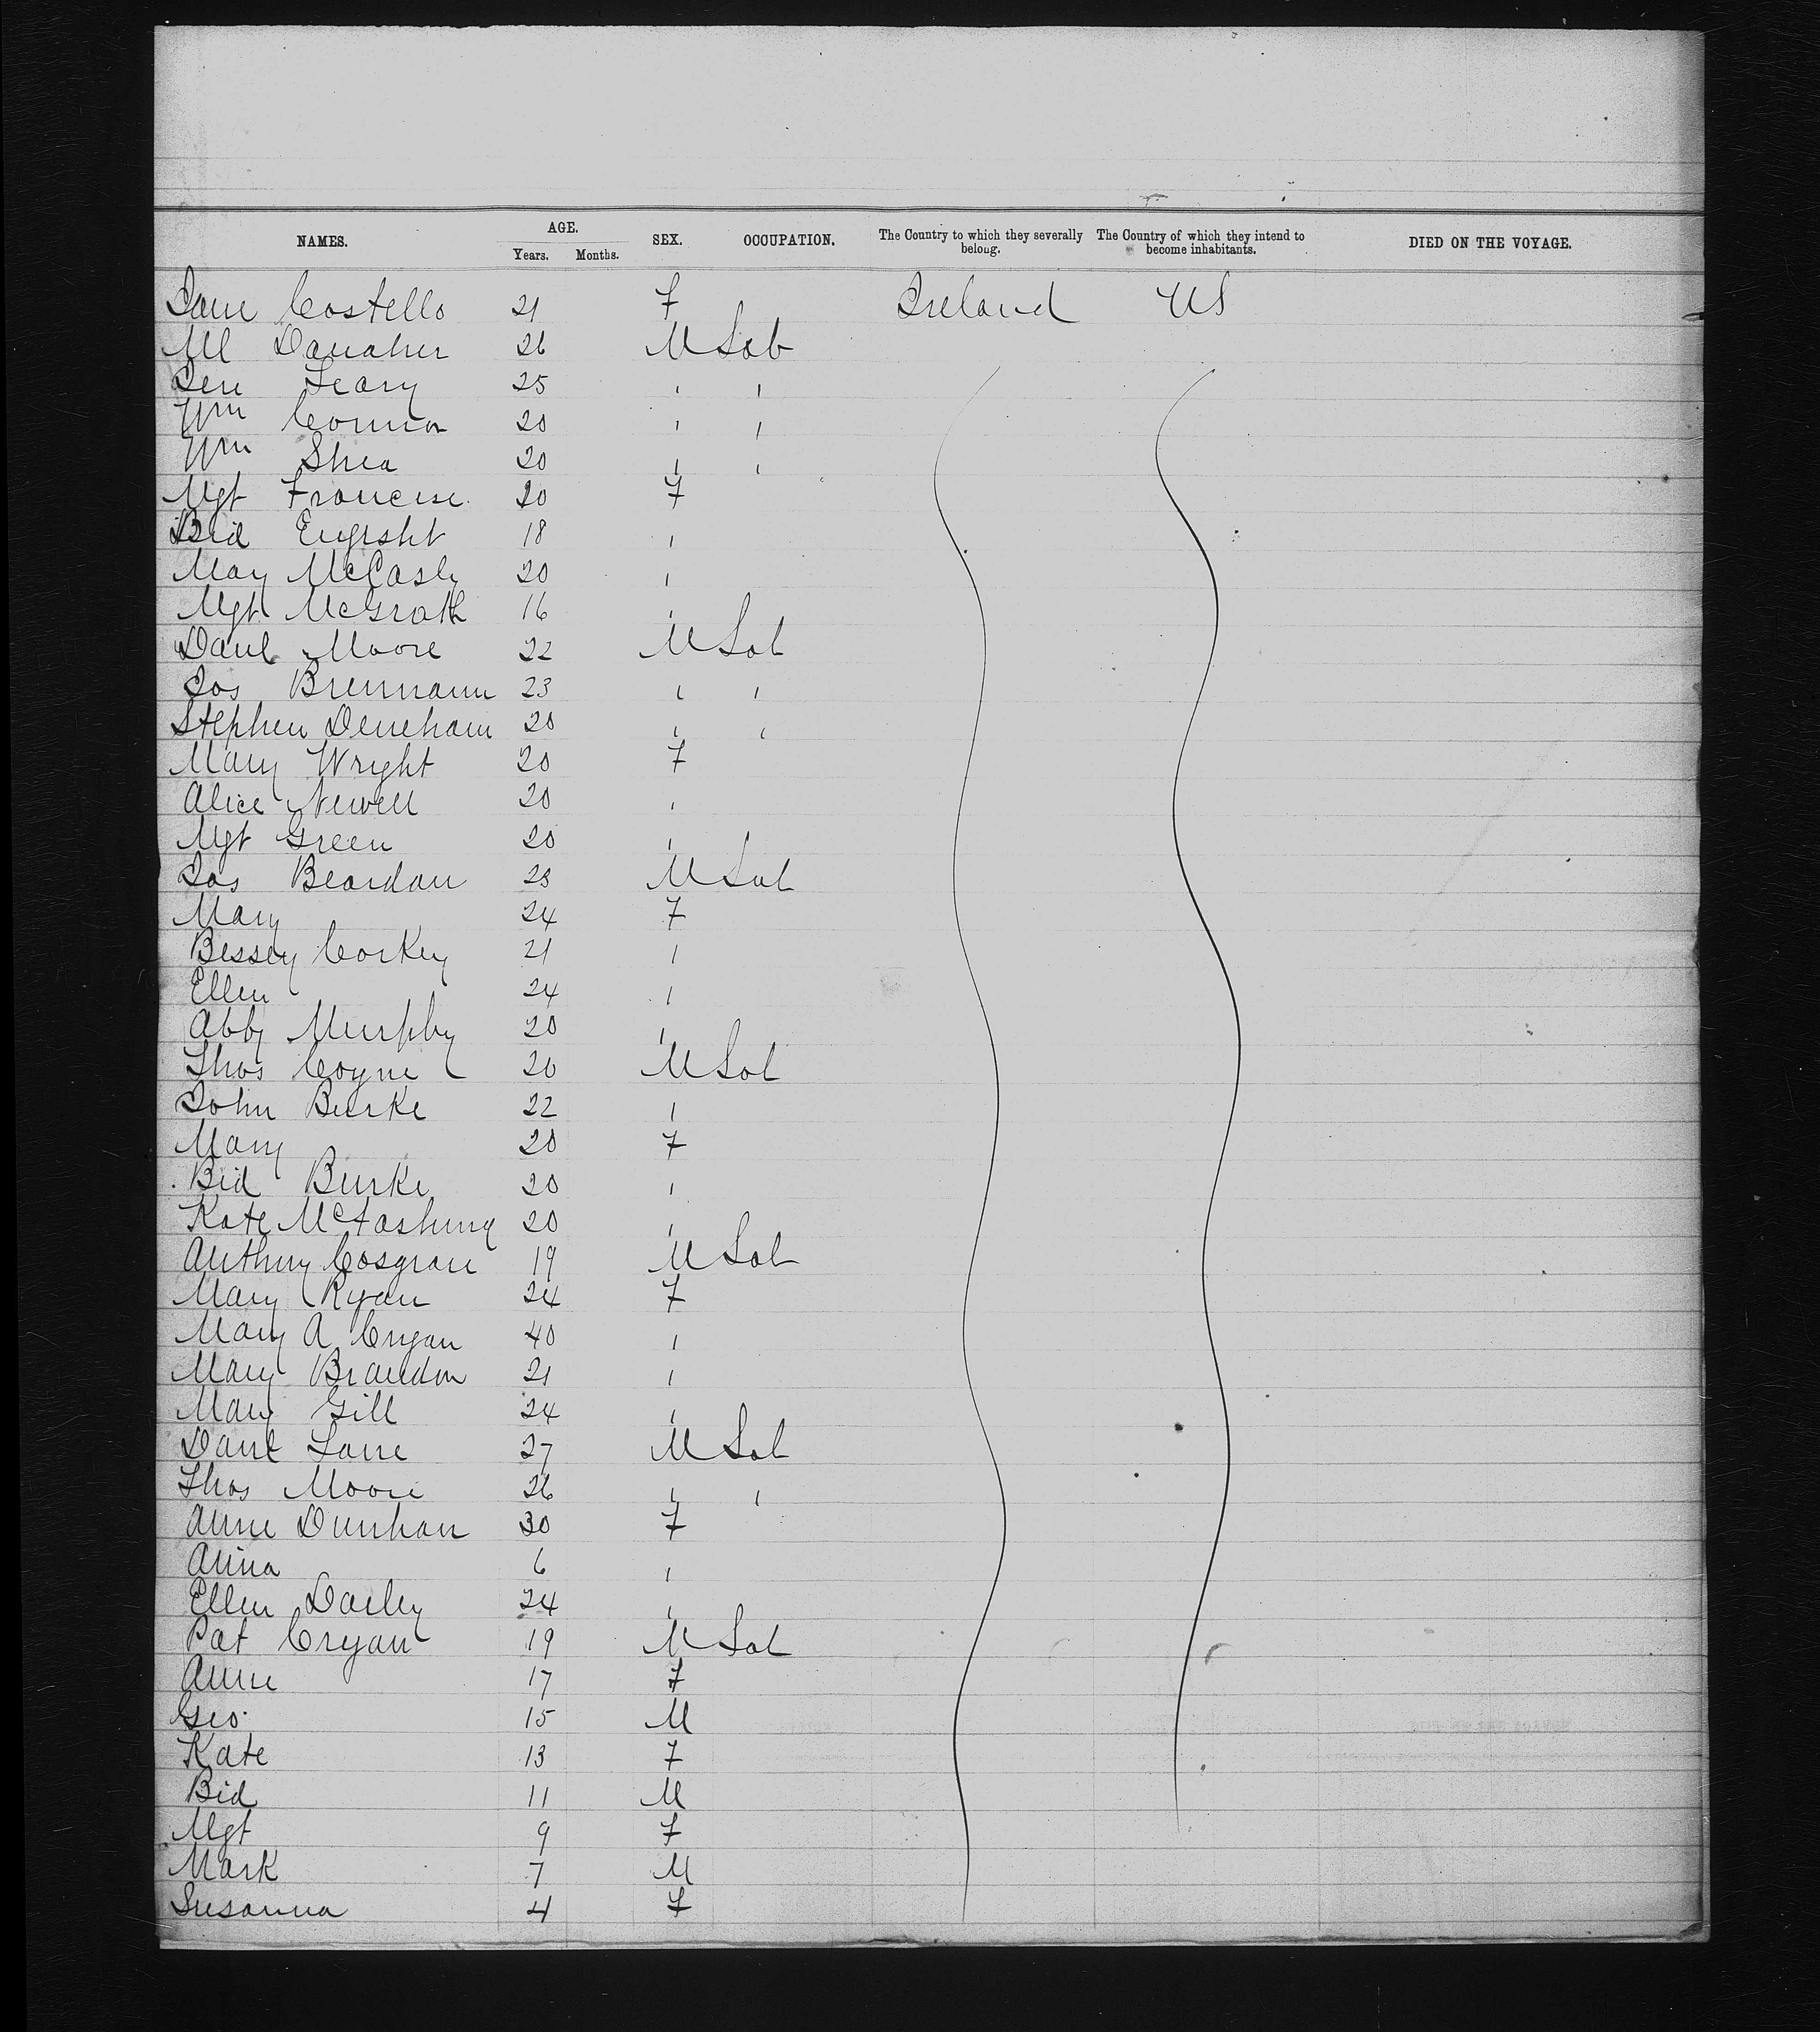 NAMES. AGE. SEX. OCCUPATION. The Country to which they severally belong. The Country of which they intend to become inhabitants. DIED ON THE VOYAGE.
Years. Months.
Jane Costello 21 F Ireland US
Ml Danaher 26 M Lab
Jere Leary 25 " "
Wm Connor 20 " "
Wm Shea 20 " "
Mgt 20 F
Bid 18 "
May 20 "
Mgt McGrath 16 "
Danl Moore 22 M Lab
Jos Brennann 23 " "
Stephen Deneham 20 " "
Mary Wright 20 F
Alice Newell 20 "
Mgt Green 20 "
Jas Beardan 23 M Lab
Mary 24 F
Bessey Corkey 21 "
Ellen 24 "
Abby Murphy 20 "
Thos Coyne 20 M Lab
John Burke 22 "
Mary 20 F
Bid Burke 20 "
Kate 20 "
Anthony Cosgrave 19 M Lab
Mary Ryan 24 F
Mary A Cryan 40 "
Mary Brandon 21 "
Mary Gill 24 "
Danl Lane 27 M Lab
Thos Moore 26 " "
Anne Dunhan 30 F
Anna 6 "
Ellen Dailey 24 "
Pat Cryan 19 M Lab
Anne 17 F
Geo. 15 M
Kate 13 F
Bid 11 M
Mgt 9 F
Mark 7 M
Susanna 4 F